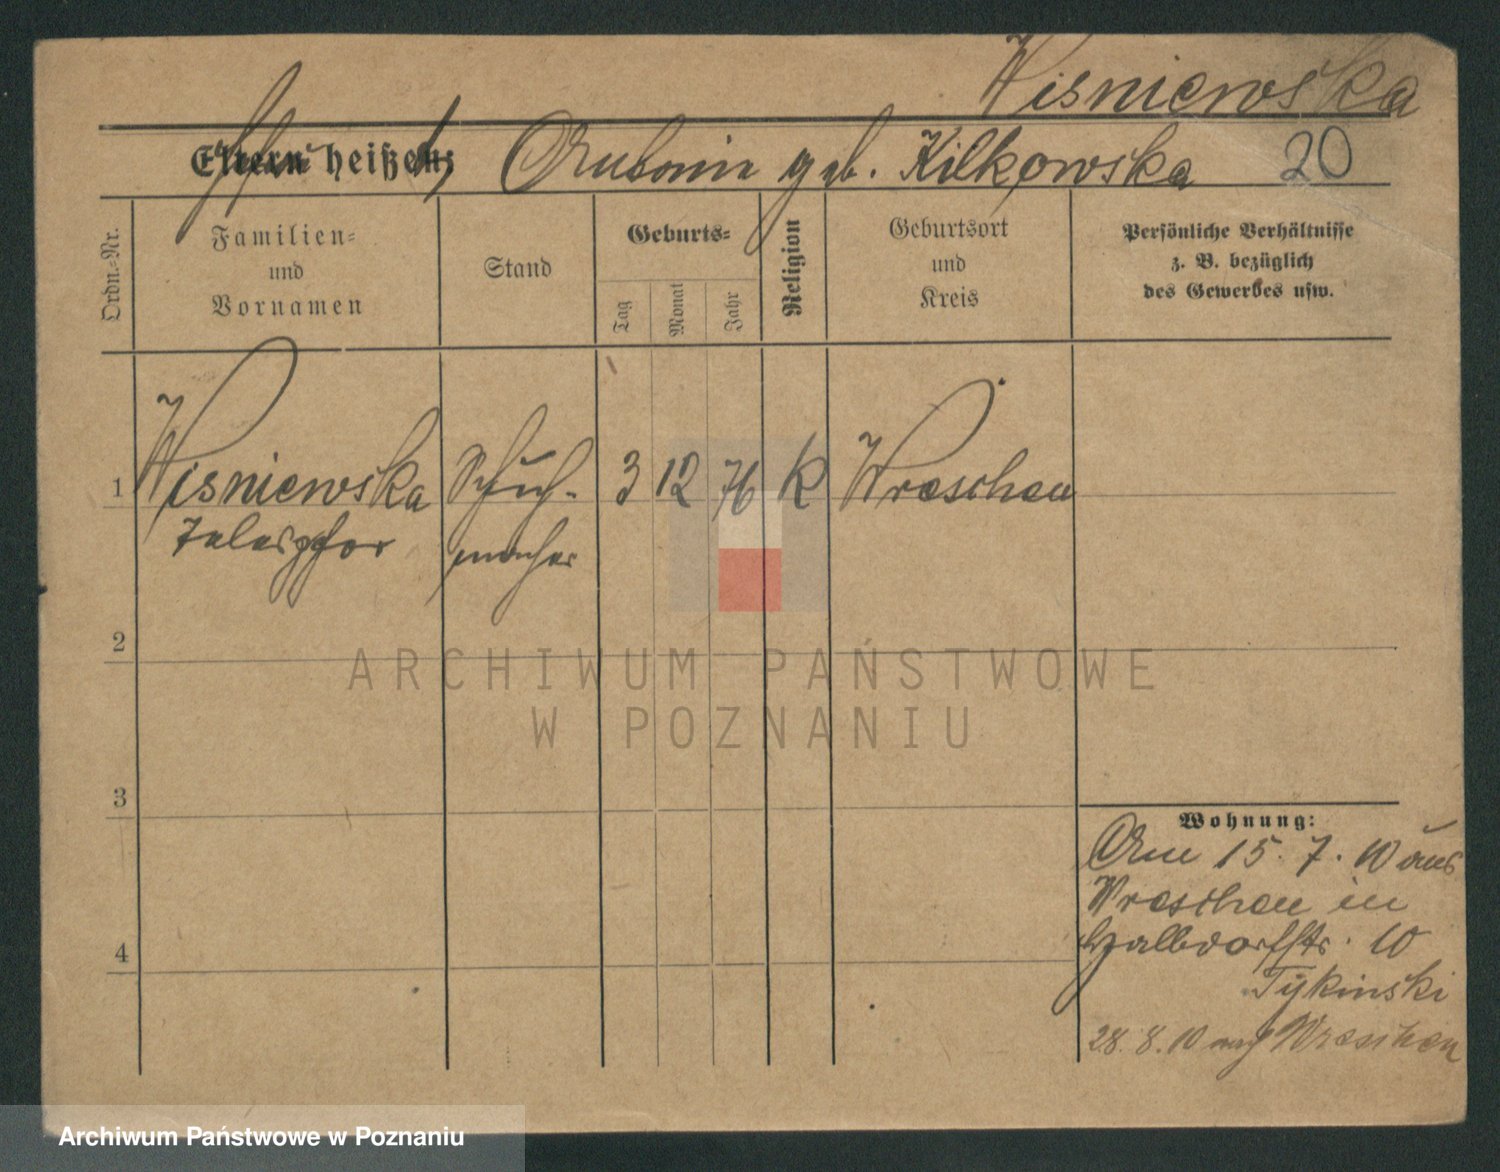 Wisniewska
Eltern heißen:
geb. Kilkowska
20
Ordn.-Nr.
Familien-
und
Vornamen
Stand
Geburts-
Tag
Monat
Jahr
Religion
Geburtsort
und
Kreis
Persönliche Verhältnisse
z. B. bezüglich
des Gewerbes usw.
1
Wisniewska
Schuh-
3
12
76
K
Wreschen
macher
2
ARCHIWUM PAŃSTWOWE
W POZNANIU
3
Wohnung:
Am 15. 7. 10 aus
Wreschen in
Halbdorfstr. 10
4
Tykinski
28. 8. 10 auf Wreschen
Archiwum Państwowe w Poznaniu